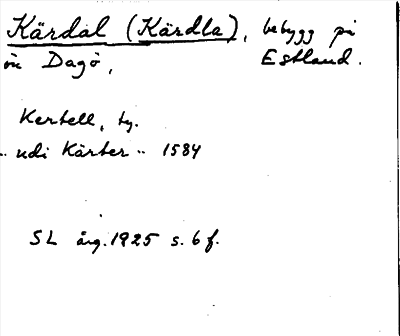 Kärdal (Kärdla), bebygg på
ön Dagö, Estland.
Kertell, ty.
.. udi Kärter .. 1584
SL årg. 1925 s. 6 f.